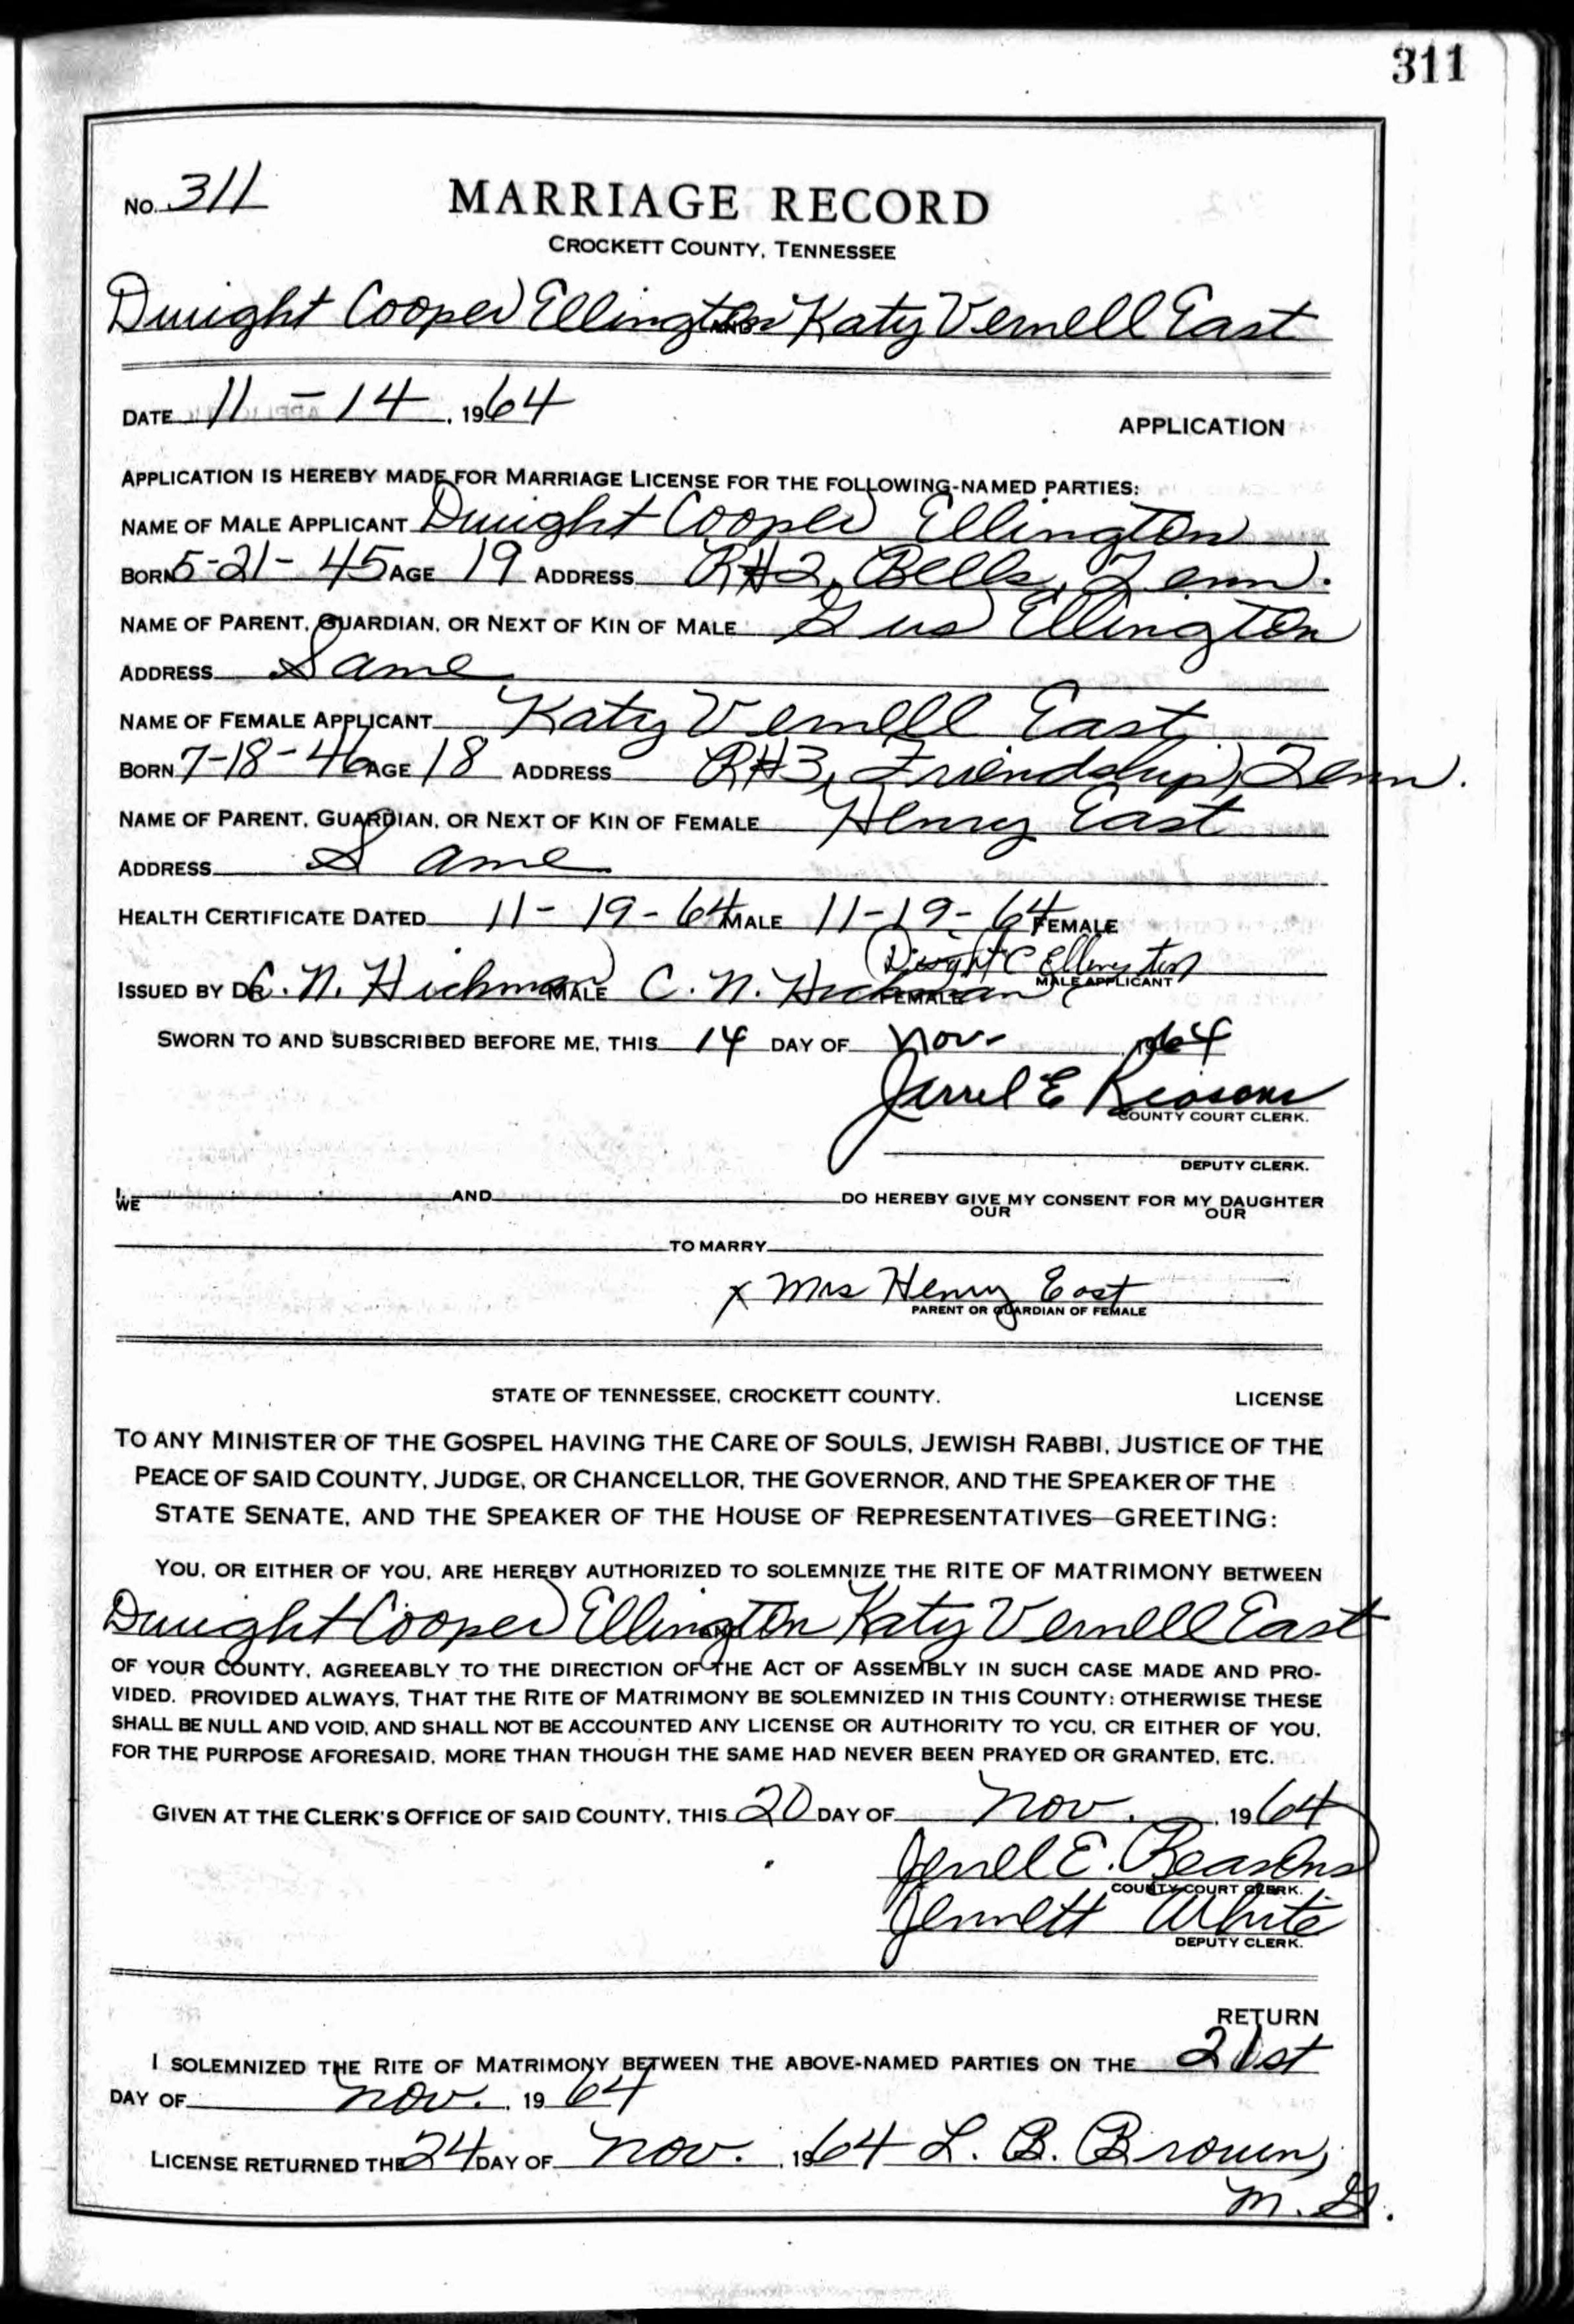 311
No. 311
MARRIAGE RECORD
CROCKETT COUNTY, TENNESSEE
Dwight Cooper Ellington AND Katy Vernell East
DATE 11-14, 1964
APPLICATION
APPLICATION IS HEREBY MADE FOR MARRIAGE LICENSE FOR THE FOLLOWING-NAMED PARTIES:
NAME OF MALE APPLICANT Dwight Cooper Ellington
BORN 5-21-45 AGE 19 ADDRESS R#2, Bells, Tenn.
NAME OF PARENT, GUARDIAN, OR NEXT OF KIN OF MALE Gus Ellington
ADDRESS Same
NAME OF FEMALE APPLICANT Katy Vernell East
BORN 7-18-46 AGE 18 ADDRESS R#3, Friendship, Tenn.
NAME OF PARENT, GUARDIAN, OR NEXT OF KIN OF FEMALE Henry East
ADDRESS Same
HEALTH CERTIFICATE DATED 11-19-64 MALE 11-19-64 FEMALE
Dwight C Ellington
MALE APPLICANT
ISSUED BY DR. C. N. Hickman MALE C. N. Hickman FEMALE
SWORN TO AND SUBSCRIBED BEFORE ME, THIS 14 DAY OF Nov. 1964
Jerrel E Reasons
COUNTY COURT CLERK.
DEPUTY CLERK.
I, WE AND DO HEREBY GIVE MY OUR CONSENT FOR MY OUR DAUGHTER
TO MARRY
x Mrs Henry East
PARENT OR GUARDIAN OF FEMALE
STATE OF TENNESSEE, CROCKETT COUNTY. LICENSE
TO ANY MINISTER OF THE GOSPEL HAVING THE CARE OF SOULS, JEWISH RABBI, JUSTICE OF THE
PEACE OF SAID COUNTY, JUDGE, OR CHANCELLOR, THE GOVERNOR, AND THE SPEAKER OF THE
STATE SENATE, AND THE SPEAKER OF THE HOUSE OF REPRESENTATIVES—GREETING:
YOU, OR EITHER OF YOU, ARE HEREBY AUTHORIZED TO SOLEMNIZE THE RITE OF MATRIMONY BETWEEN
Dwight Cooper Ellington AND Katy Vernell East
OF YOUR COUNTY, AGREEABLY TO THE DIRECTION OF THE ACT OF ASSEMBLY IN SUCH CASE MADE AND PRO-
VIDED. PROVIDED ALWAYS, THAT THE RITE OF MATRIMONY BE SOLEMNIZED IN THIS COUNTY: OTHERWISE THESE
SHALL BE NULL AND VOID, AND SHALL NOT BE ACCOUNTED ANY LICENSE OR AUTHORITY TO YOU, OR EITHER OF YOU,
FOR THE PURPOSE AFORESAID, MORE THAN THOUGH THE SAME HAD NEVER BEEN PRAYED OR GRANTED, ETC.
GIVEN AT THE CLERK'S OFFICE OF SAID COUNTY, THIS 20 DAY OF Nov. 1964
Jerrel E. Reasons
COUNTY COURT CLERK.
Jennett White
DEPUTY CLERK.
RETURN
I SOLEMNIZED THE RITE OF MATRIMONY BETWEEN THE ABOVE-NAMED PARTIES ON THE 21st
DAY OF Nov. 1964
LICENSE RETURNED THE 24 DAY OF Nov. 1964 L. B. Brown,
M. G.